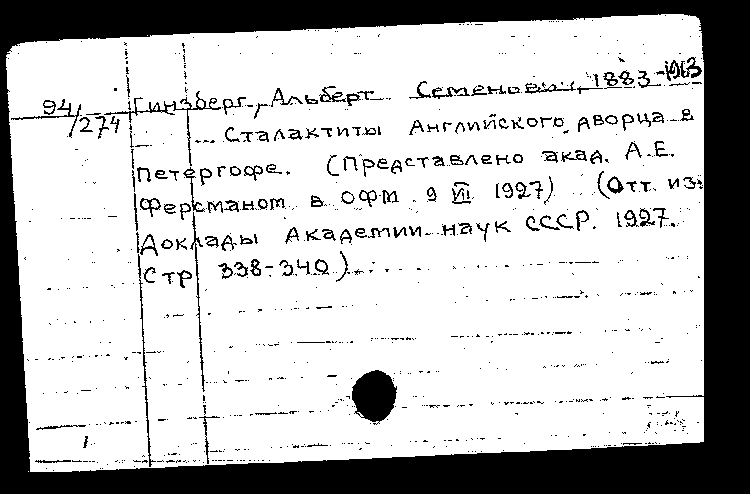 94/274
Гинзберг, Альберт Семенович, 1883-1963
... Сталактиты Английского дворца в
Петергофе. (Представлено акад. А.Е.
Ферсманом в ОФМ 9 VII 1927) (Отт. из:
Доклады Академии наук СССР. 1927.
Стр 338-340)
1